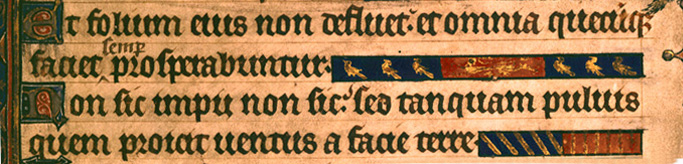 Et folium eius non defluet: et omnia quecūq;
semp̱
faciet prosperabuntur.
Non sic impii non sic: sed tanquam puluis
quem proicit uentus a facie terre